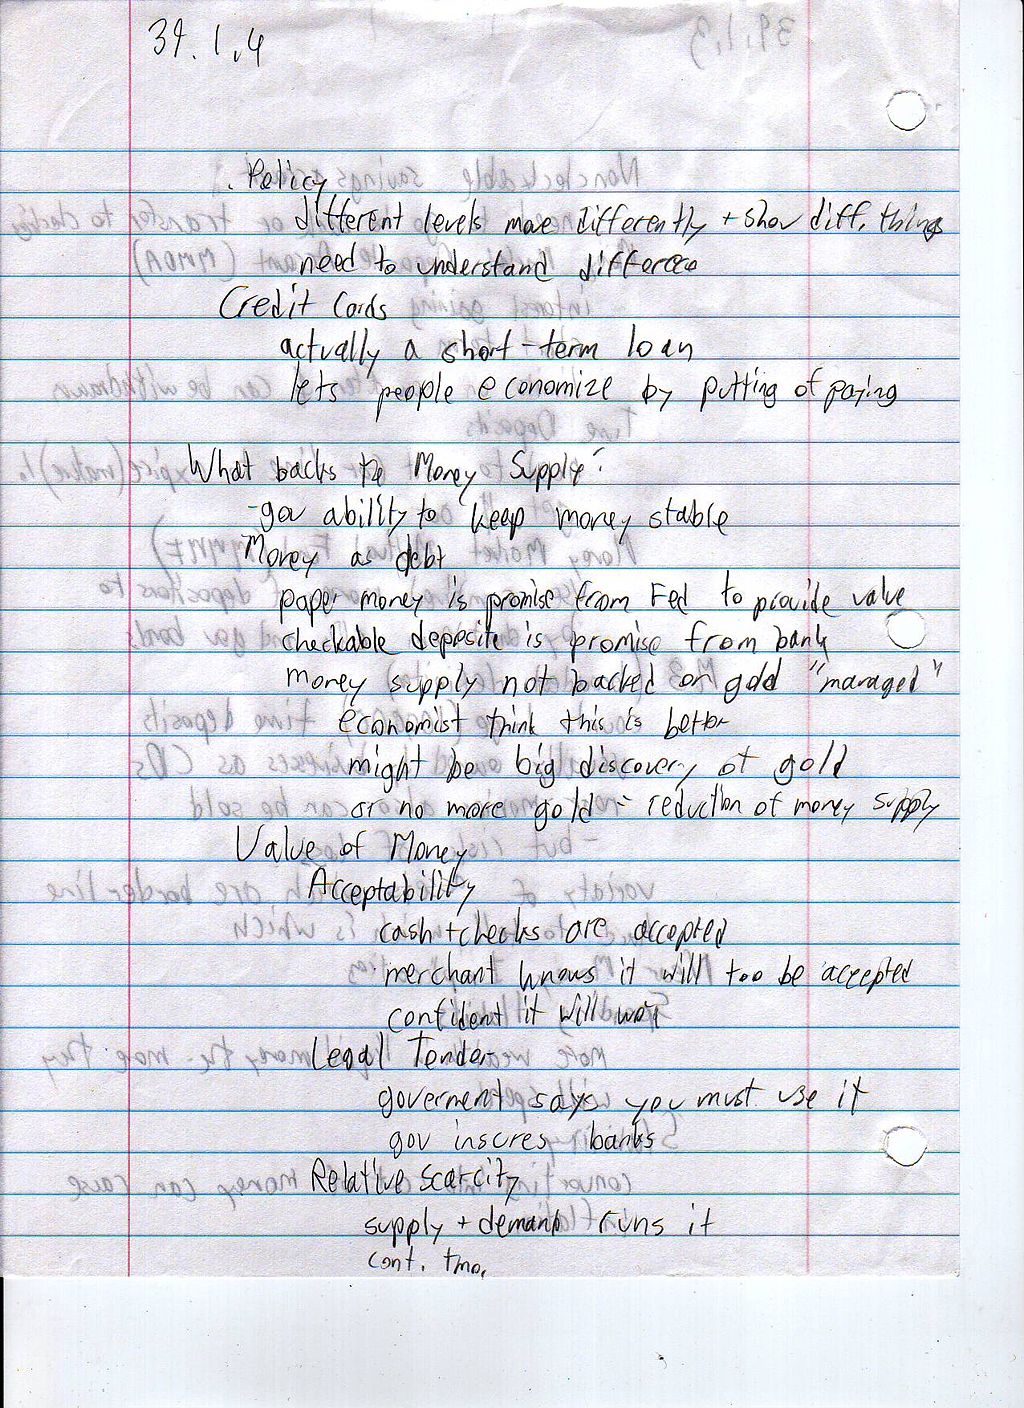 39.1.4
. Policy
different levels move differently + show diff. things
need to understand differece
Credit Cards
actually a short-term loan
lets people economize by putting of paying
What backs the Money Supply?
-gov ability to keep money stable
Money as debt
paper money is promise from Fed to provide value
checkable deposits is promise from bank
money supply not backed on gold "managed"
economist think this is better
might be big discovery of gold
or no more gold = reduction of money supply
Value of Money
Acceptability
cash + checks are accepted
merchant knows it will too be accepted
confident it will work
Legal Tender
goverment says you must use it
gov inscres banks
Relative Scarcity
supply + demand runs it
cont. tmo.